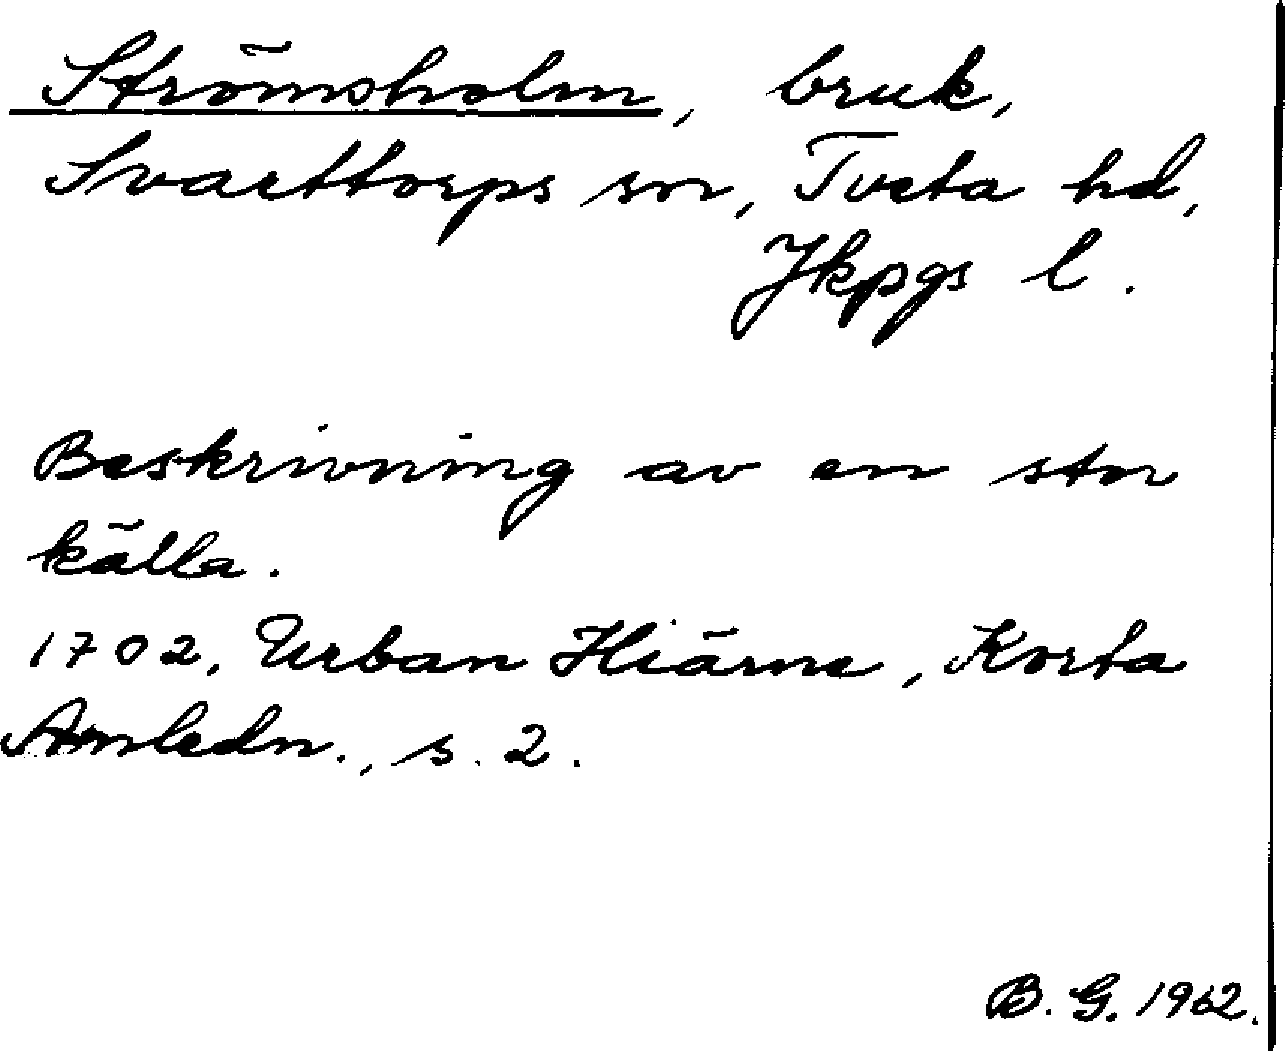 Strömsholm, bruk,
Svarttorps sn, Tveta hd,
Jkpgs l.
Beskrivning av en stor
källa.
1702, Urban Hiärne, Korta
Anledn., s. 2.
B. G. 1962.